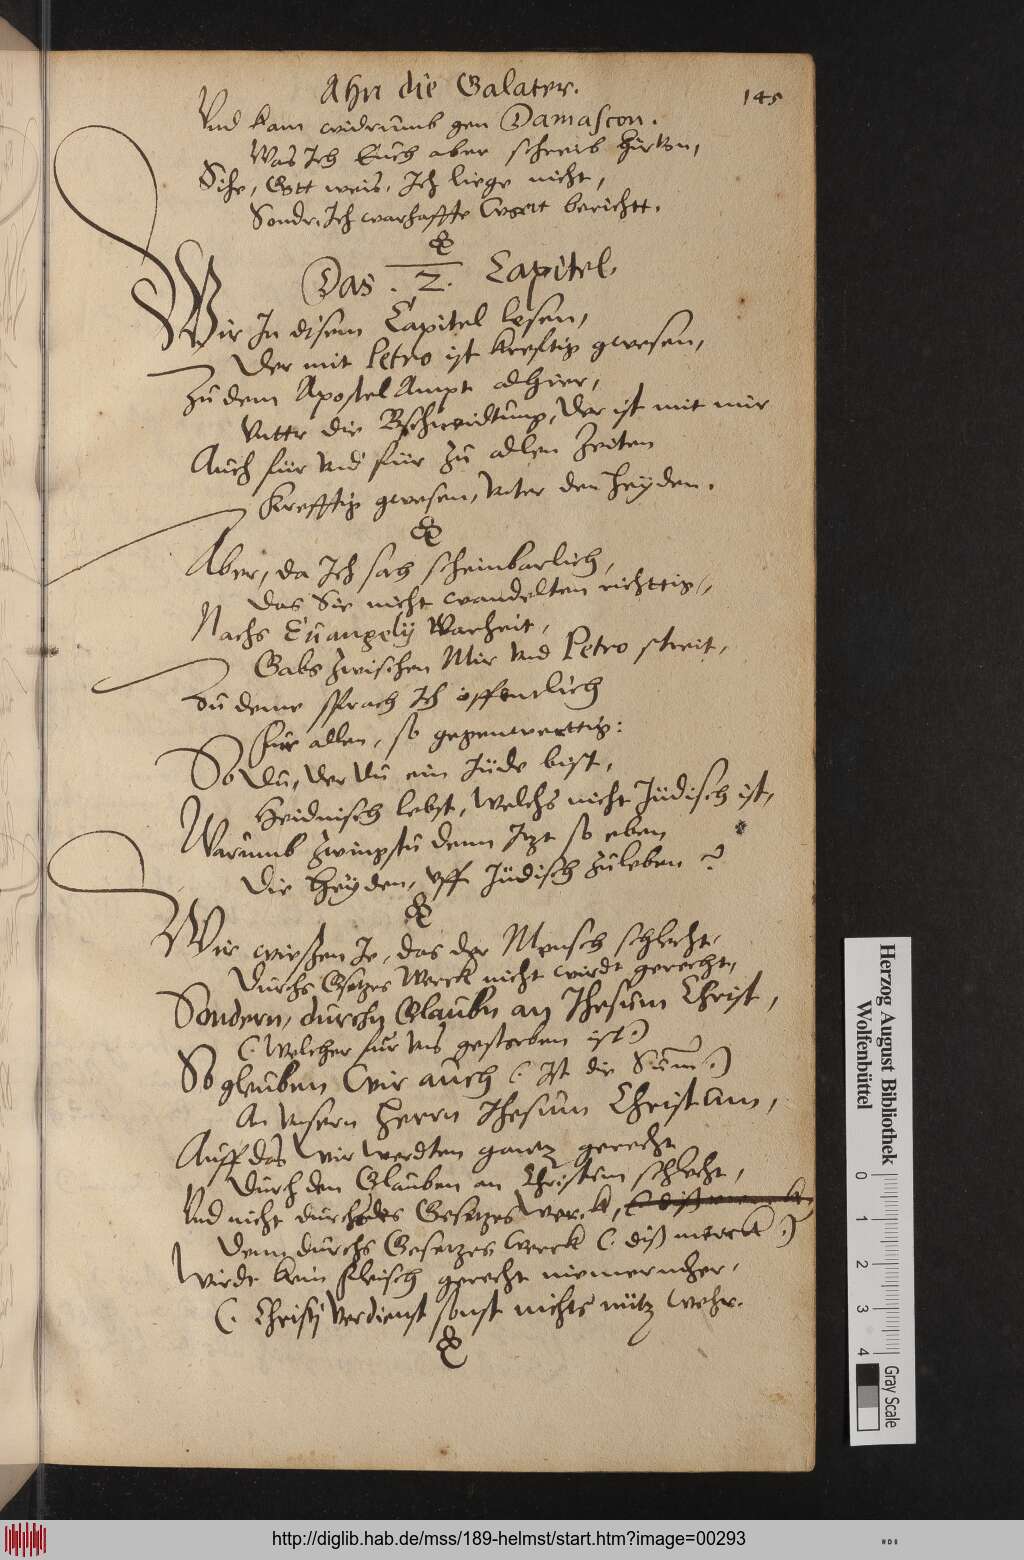 Ahn die Galater.
145
Vnd kam widrumb gen Damascon.
Was Ich Euch aber schreib hirbon,
Sihe, Gott weis, Ich liege nicht,
Sondr, Ich warhaffte Wort bericht.
Das .2. Capitel.
Wir In disem Capitel lesen,
Der mit Petro ist kreftig gwesen,
Zu dem Apostel Ampt alhier,
Vntr die Bschneidtung, Der ist mit mir
Auch für vnd für zu allen Zeiten
Krefftig gwesen, vnter den Heyden.
Aber, da Ich sah scheinbarlich,
Das Sie nicht wandelten richttig,
Nachs Euangelij Warheit,
Gabs zwischen Mir vnd Petro streit,
Zu deme sprach Ich öffentlich
Für allen, so gegenwerttig:
So Du, der Du ein Jüde bist,
Heidnisch lebst, welchs nicht Jüdisch ist,
Warumb zwingstu denn Izt so eben
Die Heyden, vff Jüdisch zuleben?
Wir wießen Je, das der Mensch schlecht
Durchs Gsetzes Werck nicht wirdt gerecht,
Sondern, durchn Glaubn an Jhesum Christ,
(. Welcher für vns gestorben ist.)
So gleuben Wir auch (. Ist die Sum̄.)
An vnsern Herrn Jhesum Christum,
Auff das Wir werdten gantz gerecht
Durch den Glauben an Christum schlecht,
Vnd nicht durchs des Gesetzes Werck,
Denn durchs Gesetzes Werck (. diß merck.)
Wirdt kein Fleisch gerecht niemermher,
(. Christj Verdienst sonst nichts nütz wehr.
Herzog August Bibliothek
Wolfenbüttel
0 1 2 3 4
Gray Scale
http://diglib.hab.de/mss/189-helmst/start.htm?image=00293